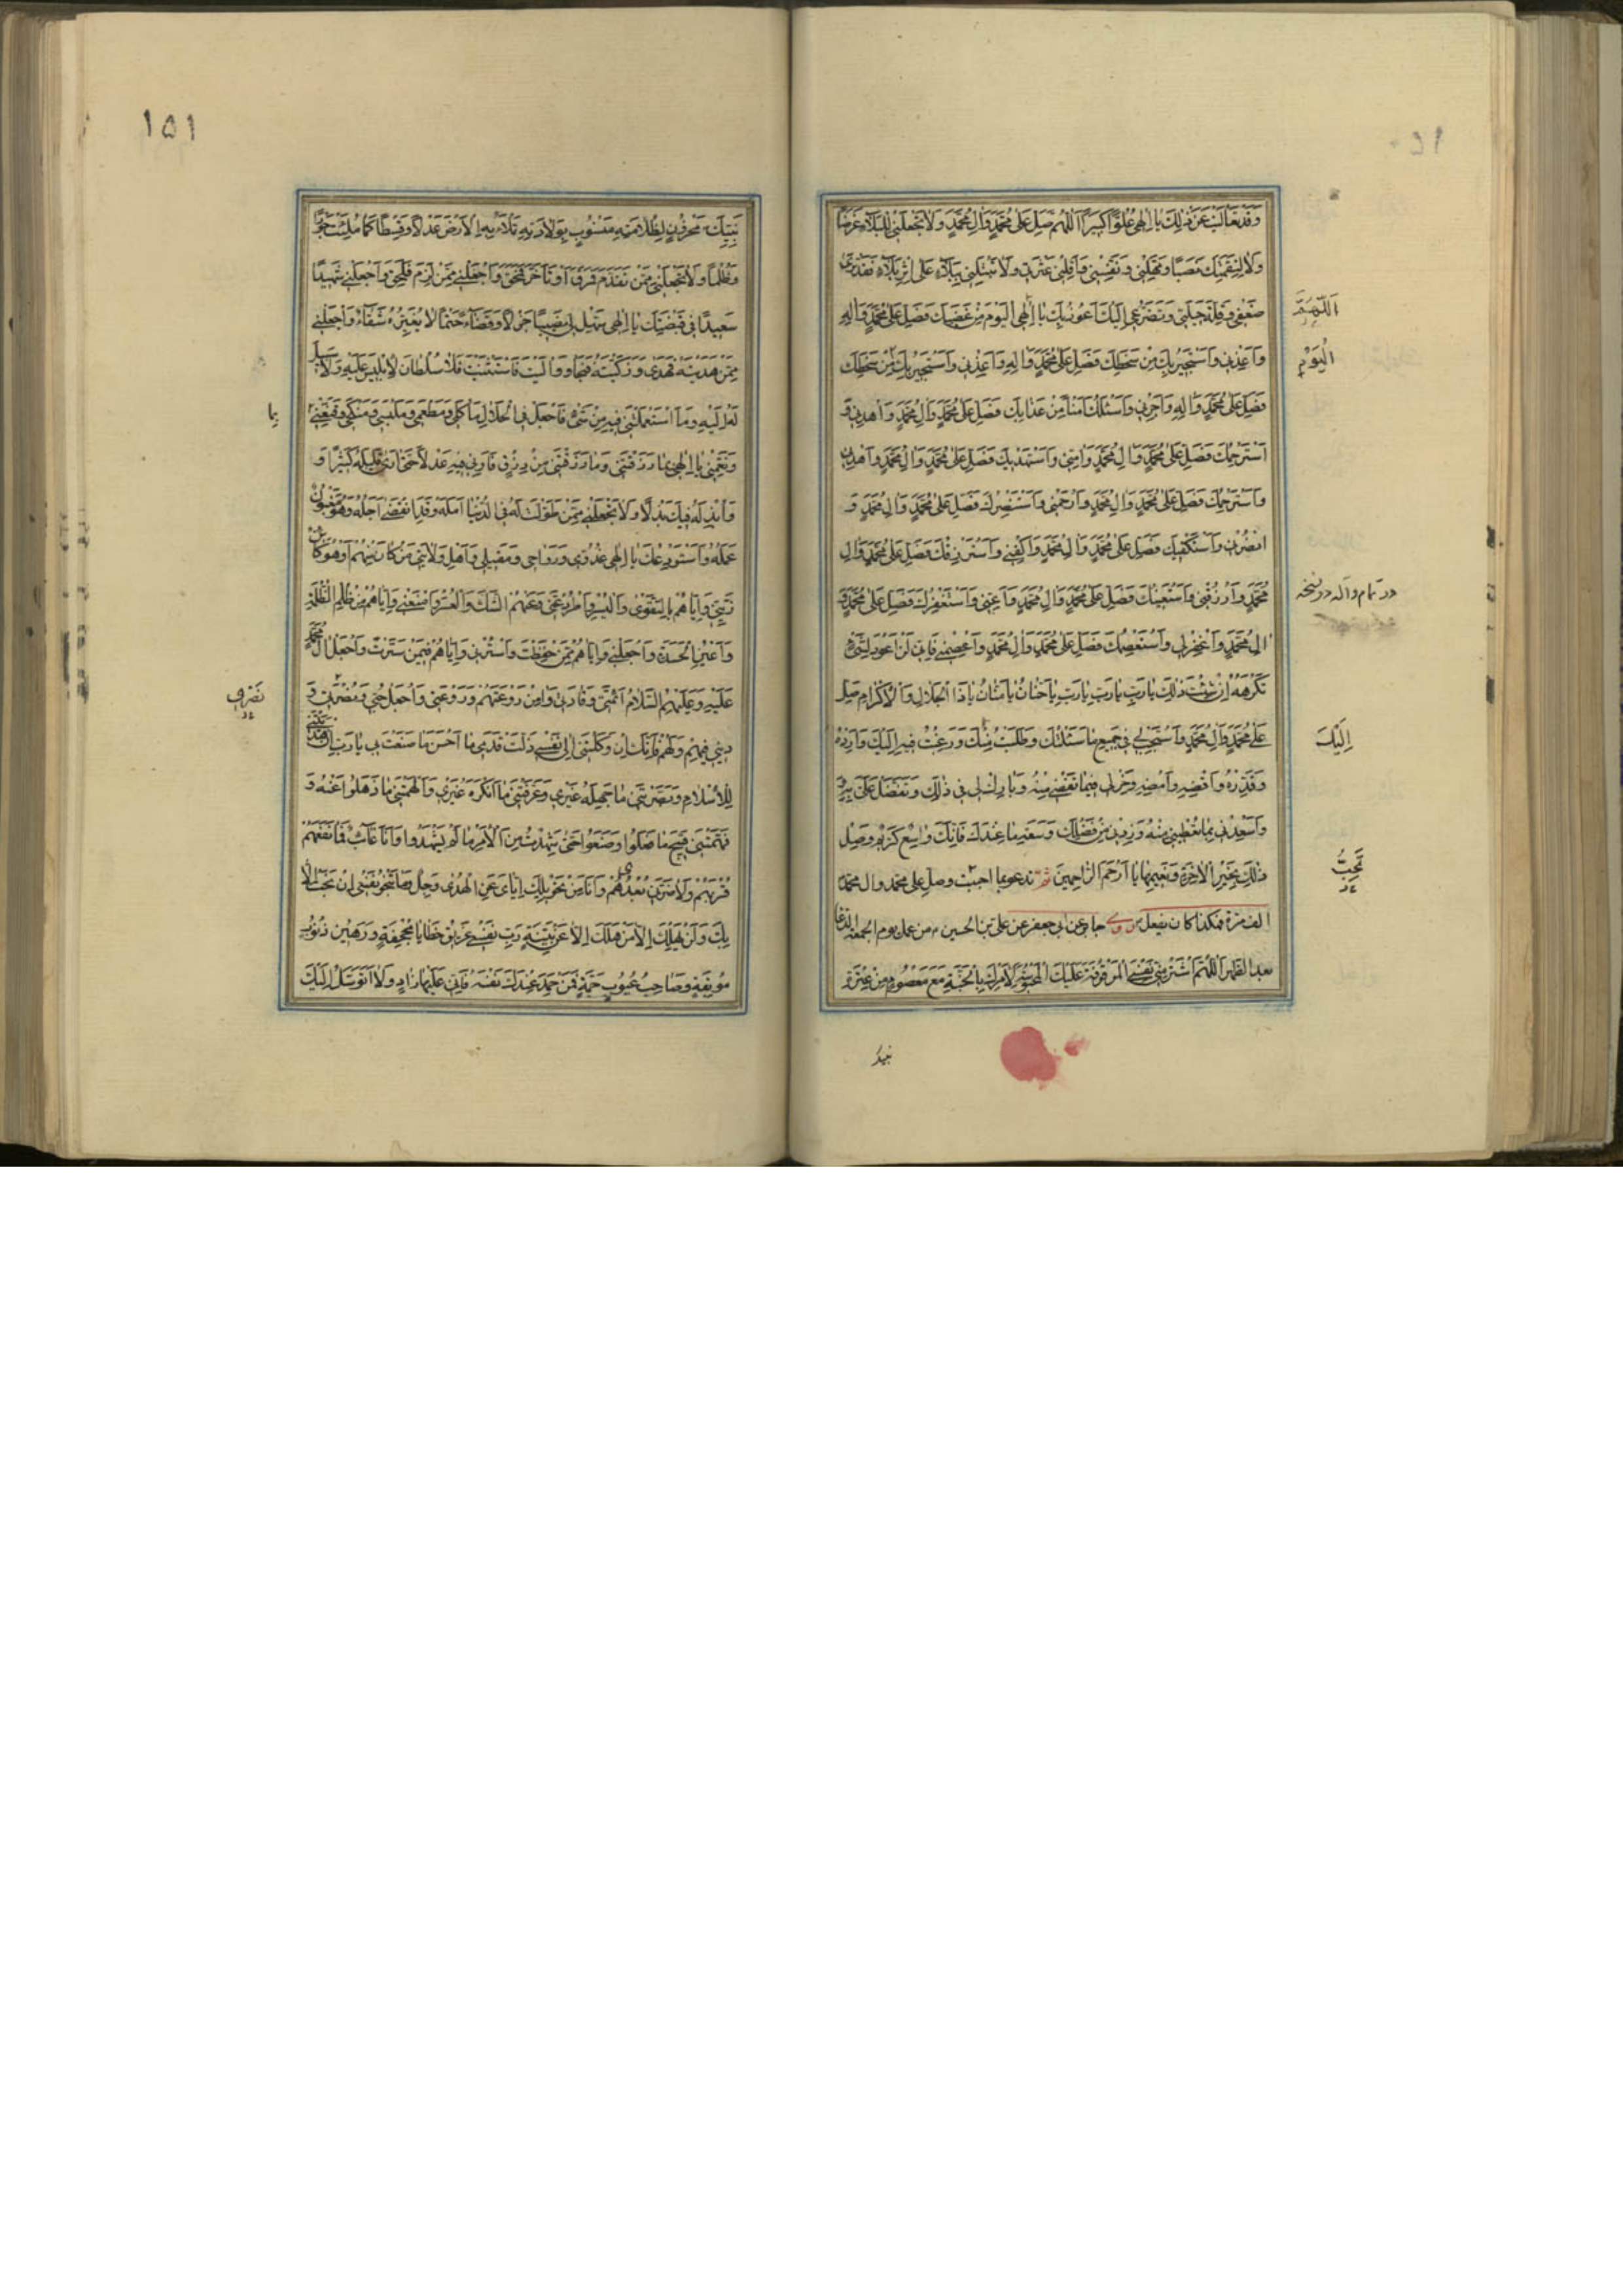 وَقَدْ تَعَالَيْتَ عَنْ ذٰلِكَ يَا اِلٰهِي عُلُوًّا كَبِيرًا اَللّٰهُمَّ صَلِّ عَلٰى مُحَمَّدٍ وَاٰلِ مُحَمَّدٍ وَلَا تَجْعَلْنِي لِلْبَلَاءِ غَرَضًا
وَلَا لِنَقِمَتِكَ نَصَبًا وَمَهِّلْنِي وَنَفِّسْنِي وَاَقِلْنِي عَثْرَتِي وَلَا تَبْتَلِيَنِّي بِبَلَاءٍ عَلٰى اَثَرِ بَلَاءٍ فَقَدْ تَرٰى
ضَعْفِي وَقِلَّةَ حِيلَتِي وَتَضَرُّعِي اِلَيْكَ اَعُوذُ بِكَ يَا اِلٰهِي الْيَوْمَ مِنْ غَضَبِكَ فَصَلِّ عَلٰى مُحَمَّدٍ وَاٰلِهِ
اَللّٰهُمَّ
وَاَعِذْنِي وَاَسْتَجِيرُ بِكَ مِنْ سَخَطِكَ فَصَلِّ عَلٰى مُحَمَّدٍ وَاٰلِهِ وَاَعِذْنِي وَاَسْتَجِيرُ بِكَ مِنْ سَخَطِكَ
اَلْيَوْمَ
فَصَلِّ عَلٰى مُحَمَّدٍ وَاٰلِهِ وَاَجِرْنِي وَاَسْئَلُكَ اَمْنًا مِنْ عَذَابِكَ فَصَلِّ عَلٰى مُحَمَّدٍ وَاٰلِ مُحَمَّدٍ وَاهْدِنِي وَ
اَسْتَرْحِمُكَ فَصَلِّ عَلٰى مُحَمَّدٍ وَاٰلِ مُحَمَّدٍ وَاٰمِنِّي وَاَسْتَهْدِيكَ فَصَلِّ عَلٰى مُحَمَّدٍ وَاٰلِ مُحَمَّدٍ وَاهْدِنِي
وَاَسْتَرْحِمُكَ فَصَلِّ عَلٰى مُحَمَّدٍ وَاٰلِ مُحَمَّدٍ وَارْحَمْنِي وَاَسْتَنْصِرُكَ فَصَلِّ عَلٰى مُحَمَّدٍ وَاٰلِ مُحَمَّدٍ وَ
انْصُرْنِي وَاَسْتَكْفِيكَ فَصَلِّ عَلٰى مُحَمَّدٍ وَاٰلِ مُحَمَّدٍ وَاكْفِنِي وَاَسْتَرْزِقُكَ فَصَلِّ عَلٰى مُحَمَّدٍ وَاٰلِ
مُحَمَّدٍ وَارْزُقْنِي وَاَسْتَعِينُكَ فَصَلِّ عَلٰى مُحَمَّدٍ وَاٰلِ مُحَمَّدٍ وَاَعِنِّي وَاَسْتَغْفِرُكَ فَصَلِّ عَلٰى مُحَمَّدٍ وَ
در تمام واله در نسخه
اٰلِ مُحَمَّدٍ وَاغْفِرْ لِي وَاَسْتَعْصِمُكَ فَصَلِّ عَلٰى مُحَمَّدٍ وَاٰلِ مُحَمَّدٍ وَاعْصِمْنِي فَاِنِّي لَنْ اَعُودَ لِشَيْءٍ
تَكْرَهُهُ اِنْ شِئْتَ ذٰلِكَ يَا رَبِّ يَا رَبِّ يَا رَبِّ يَا حَنَّانُ يَا مَنَّانُ يَا ذَا الْجَلَالِ وَالْاِكْرَامِ صَلِّ
عَلٰى مُحَمَّدٍ وَاٰلِ مُحَمَّدٍ وَاسْتَجِبْ لِي فِي جَمِيعِ مَا سَئَلْتُكَ وَطَلَبْتُ مِنْكَ وَرَغِبْتُ فِيهِ اِلَيْكَ وَاَرِدْهُ
اِلَيْكَ
وَقَدِّرْهُ وَاقْضِهِ وَاَمْضِهِ وَخِرْ لِي فِيمَا تَقْضِي مِنْهُ وَبَارِكْ لِي فِي ذٰلِكَ وَتَفَضَّلْ عَلَيَّ بِهِ
وَاَسْعِدْنِي بِمَا تُعْطِينِي مِنْهُ وَزِدْنِي مِنْ فَضْلِكَ وَسَعَةِ مَا عِنْدَكَ فَاِنَّكَ وَاسِعٌ كَرِيمٌ وَصِلْ
ذٰلِكَ بِخَيْرِ الْاٰخِرَةِ وَنَعِيمِهَا يَا اَرْحَمَ الرَّاحِمِينَ ثم تدعو بما احببت وصل على محمد وال محمد
تُحِبُّ
الف مرة فهكذا كان يفعل روى جابر عن ابى جعفر عن على بن الحسين من عمل يوم الجمعة الدعا
بعد الظهر اَللّٰهُمَّ اشْتَرِ مِنِّي نَفْسِيَ الْمَوْقُوفَةَ عَلَيْكَ الْمَحْبُوسَةَ لِاَمْرِكَ بِالْجَنَّةِ مَعَ مَعْصُومٍ مِنْ عِتْرَةِ
نبيك
١٥١
نَبِيِّكَ مَخْزُونٍ لِظُلَامَتِهِ مَنْسُوبٍ بِوِلَادَتِهِ تَمْلَاُ بِهِ الْاَرْضَ عَدْلًا وَقِسْطًا كَمَا مُلِئَتْ جَوْرًا
وَظُلْمًا وَلَا تَجْعَلْنِي مِمَّنْ تَقَدَّمَ فَمَرَقَ اَوْ تَاَخَّرَ فَمُحِقَ وَاجْعَلْنِي مِمَّنْ لَزِمَ فَلَحِقَ وَاجْعَلْنِي شَهِيدًا
سَعِيدًا فِي قَبْضَتِكَ يَا اِلٰهِي سَهِّلْ لِي نَصِيبًا جَزْلًا وَقَضَاءً حَتْمًا لَا يُغَيِّرُهُ شَقَاءٌ وَاجْعَلْنِي
مِمَّنْ هَدَيْتَهُ فَهَدٰى وَزَكَّيْتَهُ فَنَجَا وَوَالَيْتَ فَاسْتَثْنَيْتَ فَلَا سُلْطَانَ لِاِبْلِيسَ عَلَيْهِ وَلَا سَبِيلَ
لَهُ اِلَيْهِ وَمَا اسْتَعْمَلْتَنِي فِيهِ مِنْ شَيْءٍ فَاجْعَلْ فِي الْحَلَالِ مَاْكَلِي وَمَطْعَمِي وَمَلْبَسِي وَمَنْكَحِي وَقَنِّعْنِي
بِمَا
وَنَعِّمْنِي يَا اِلٰهِي بِمَا رَزَقْتَنِي وَمَا رَزَقْتَنِي مِنْ رِزْقٍ فَاَرِنِي فِيهِ عَدْلًا حَتّٰى اَرٰى قَلِيلَهُ كَثِيرًا وَ
وَاَبْذُلَهُ فِيكَ بَذْلًا وَلَا تَجْعَلْنِي مِمَّنْ طَوَّلْتَ لَهُ فِي الدُّنْيَا اَمَلَهُ وَقَدِ انْقَضٰى اَجَلُهُ وَهُوَ مَغْبُونٌ
عَمَلُهُ وَاَسْتَوْدِعُكَ يَا اِلٰهِي غُدُوِّي وَرَوَاحِي وَمَقِيلِي وَاَهْلَ وَلَايَتِي مَنْ كَانَ مِنْهُمْ اَوْ هُوَ كَائِنٌ
زَيِّنِّي وَاِيَّاهُمْ بِالتَّقْوٰى وَالْيُسْرِ وَاطْرُدْ عَنِّي وَعَنْهُمُ الشَّكَّ وَالْعُسْرَ وَامْنَعْنِي وَاِيَّاهُمْ مِنْ ظُلْمِ الظَّلَمَةِ
وَاَعْيُنِ الْحَسَدَةِ وَاجْعَلْنِي وَاِيَّاهُمْ مِمَّنْ حَفِظْتَ وَاسْتُرْنِي وَاِيَّاهُمْ فِيمَنْ سَتَرْتَ وَاجْعَلْ اٰلَ مُحَمَّدٍ
عَلَيْهِ وَعَلَيْهِمُ السَّلَامُ اَئِمَّتِي وَقَادَتِي وَاٰمِنْ رَوْعَتَهُمْ وَرَوْعَتِي وَاجْعَلْ حُبِّي وَنُصْرَتِي وَ
نَصْرِي
دِينِي فِيهِمْ وَلَهُمْ فَاِنَّكَ اِنْ وَكَلْتَنِي اِلٰى نَفْسِي زَلَّتْ قَدَمِي مَا اَحْسَنَ مَا صَنَعْتَ بِي يَا رَبِّ اِنْ هَدَيْتَنِي
لِلْاِسْلَامِ وَبَصَّرْتَنِي مَا جَهِلَهُ غَيْرِي وَعَرَّفْتَنِي مَا اَنْكَرَهُ غَيْرِي وَاَلْهَمْتَنِي مَا ذَهَلُوا عَنْهُ وَ
فَهَّمْتَنِي قَبِيحَ مَا صَنَعُوا وَضَيَّعُوا حَتّٰى شَهِدْتُ مِنَ الْاَمْرِ مَا لَمْ يَشْهَدُوا وَاَنَا غَائِبٌ فَمَا نَفَعَهُمْ
قُرْبُهُمْ وَلَا ضَرَّنِي بُعْدِي وَاَنَا مِنْ تَحْوِيلِكَ اِيَّايَ عَنِ الْهُدٰى وَجِلٌ وَمَا تَنْجُو نَفْسِي اِنْ نَجَتْ اِلَّا
بِكَ وَلَنْ يَهْلِكَ اِلَّا مَنْ هَلَكَ اِلَّا عَنْ بَيِّنَةٍ رَبِّ نَفْسِي غَرِيقُ خَطَايَا مُجْحِفَةٍ وَرَهِينُ ذُنُوبٍ
مُوبِقَةٍ وَصَاحِبُ عُيُوبٍ جَمَّةٍ فَمَنْ حَمِدَ عِنْدَكَ نَفْسَهُ فَاِنِّي عَلَيْهَا زَارٍ وَلَا اَتَوَسَّلُ اِلَيْكَ